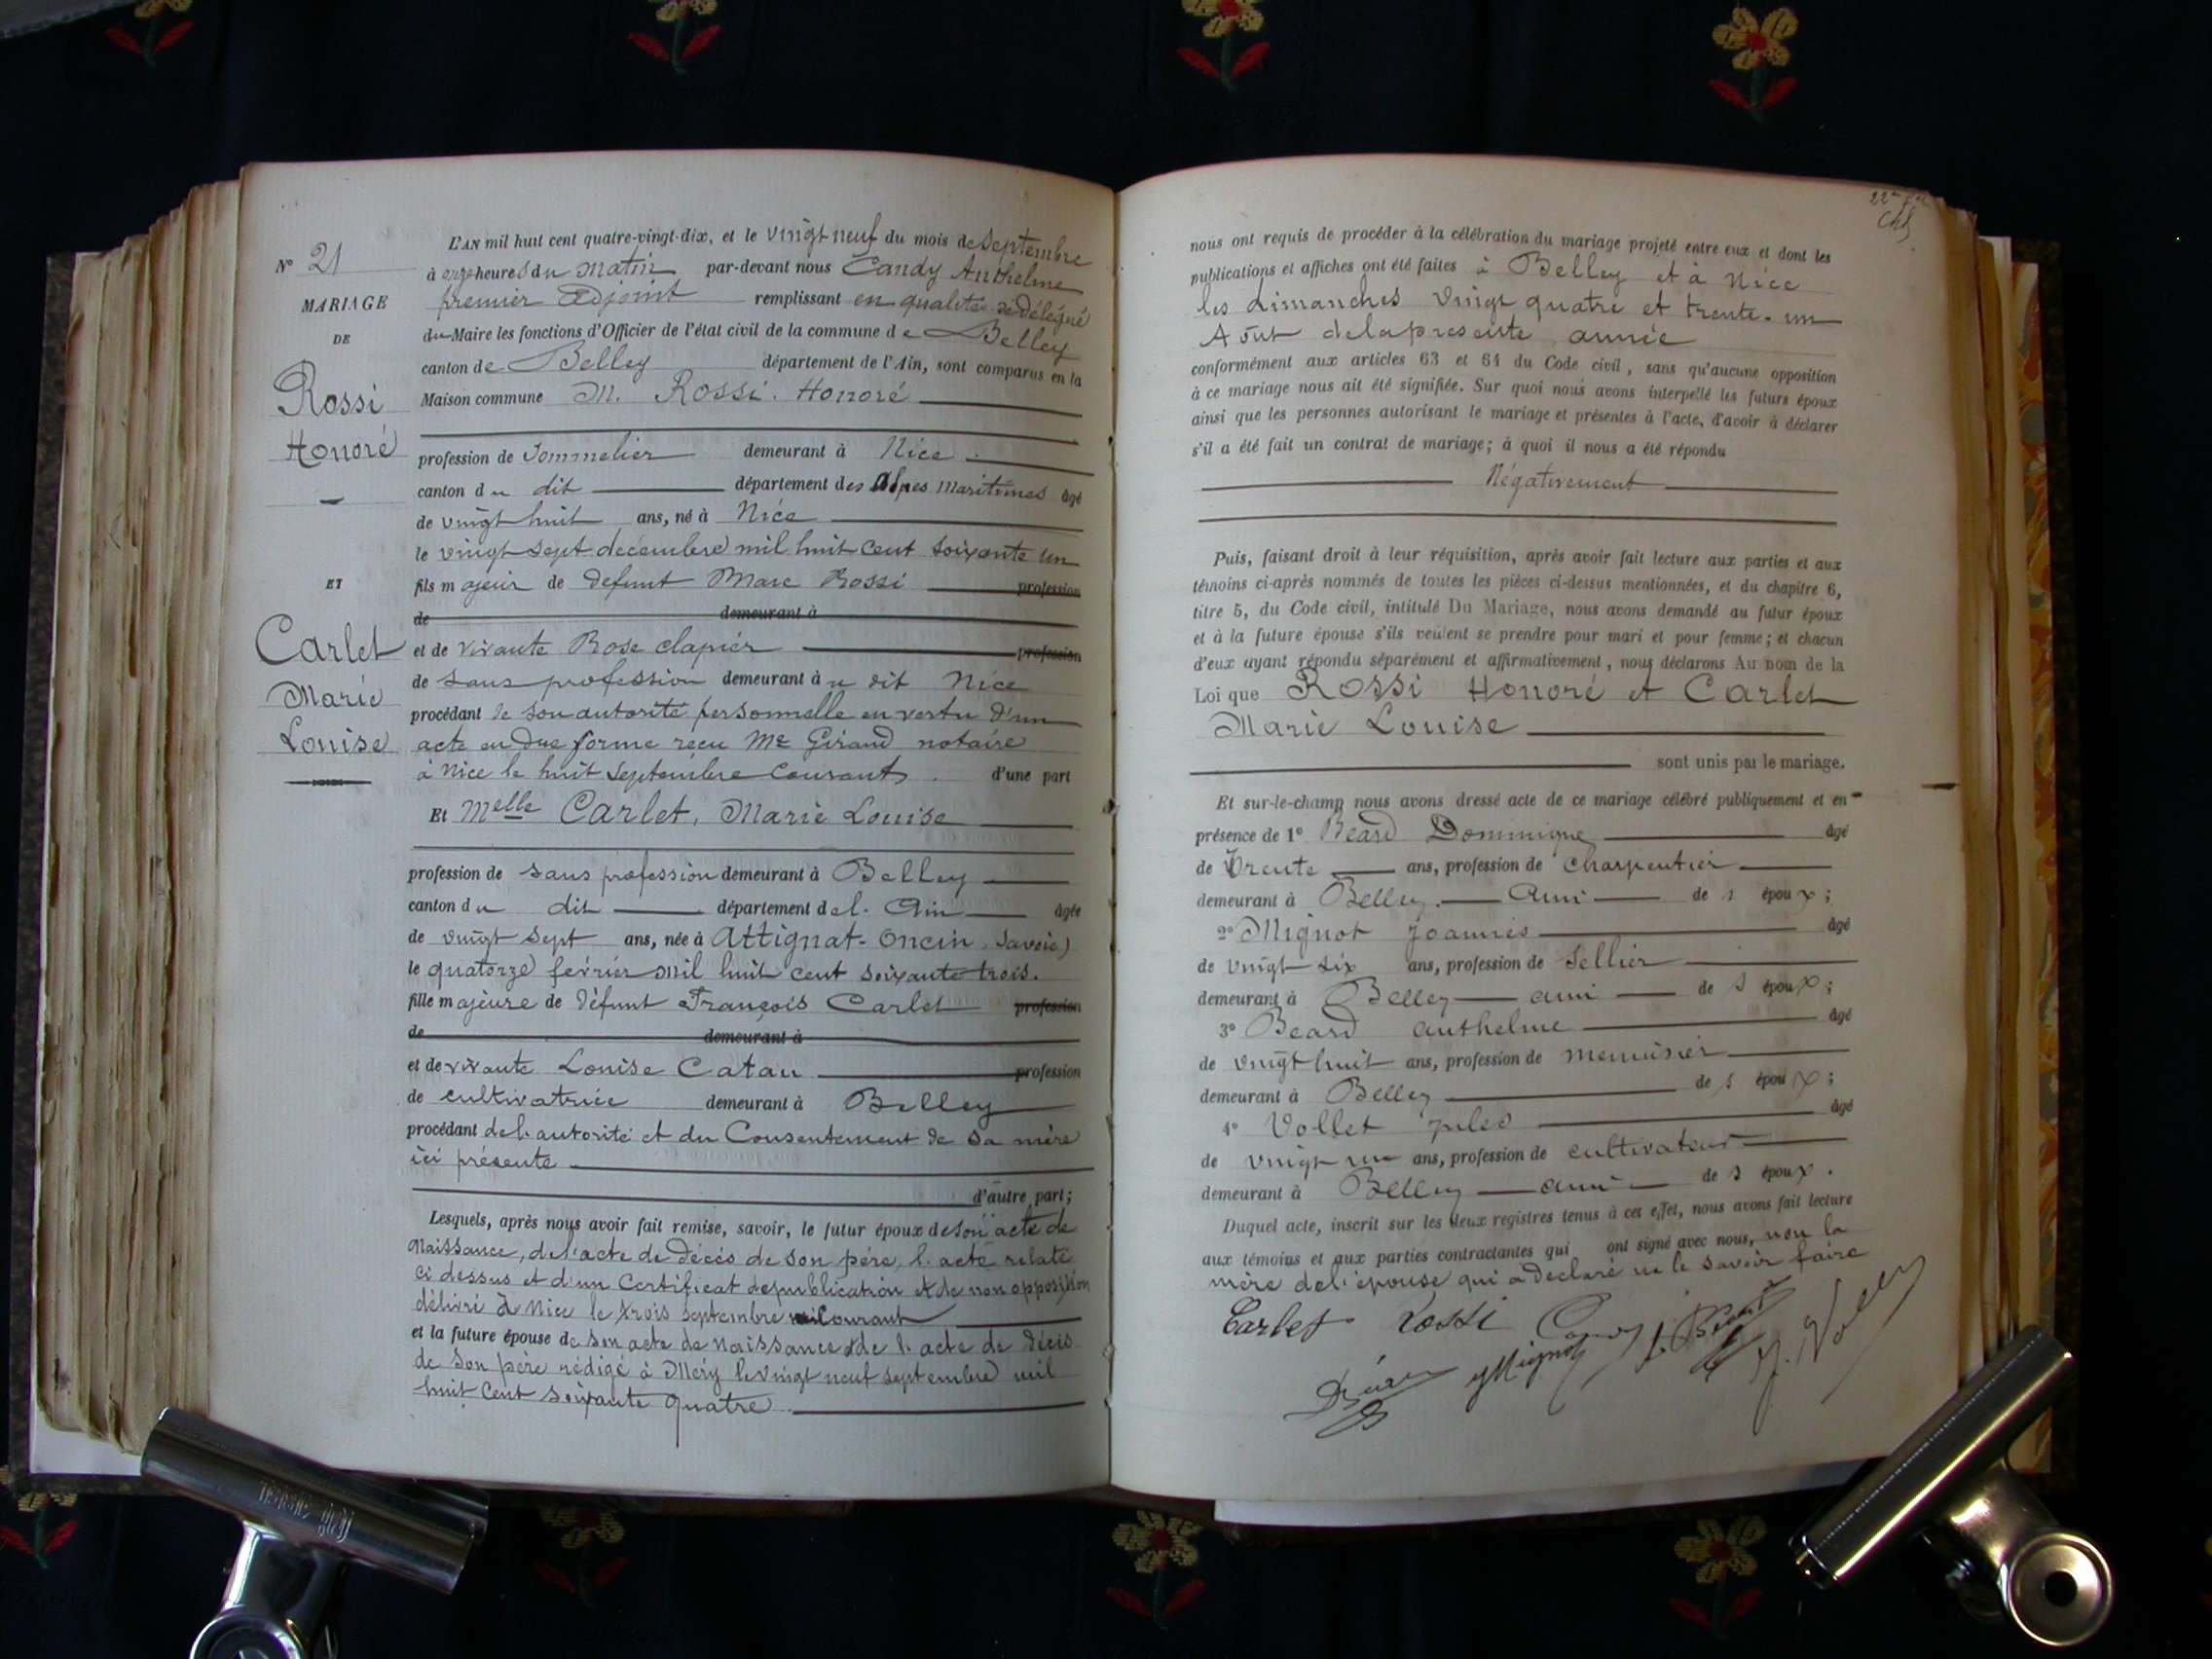 N° 21
MARIAGE
DE
Rossi
Honoré
ET
Carlet
Marie
Louise
L'AN mil huit cent quatre-vingt-dix, et le vingt neuf du mois de septembre
à onze heures du matin par-devant nous Candy Anthelme
premier adjoint remplissant en qualité de délégué
du Maire les fonctions d'Officier de l'état civil de la commune de Belley
canton de Belley département de l'Ain, sont comparus en la
Maison commune M. Rossi. Honoré
profession de Sommelier demeurant à Nice
canton du dit département des Alpes Maritimes âgé
de vingt huit ans, né à Nice
le vingt sept decembre mil huit cent soixante un
fils majeur de défunt Marc Rossi profession
de demeurant à
et de vivante Rose clapier profession
de sans profession demeurant à u dit Nice
procédant de son autorité personnelle en vertu d'un
acte en due forme recu Me Giraud notaire
à Nice le huit septembre courant. d'une part
Et Melle Carlet, Marie Louise
profession de sans profession demeurant à Belley
canton du dit département de l. Ain âgée
de vingt sept ans, née à Attignat-Oncin (Savoie)
le quatorze février mil huit cent soixante trois.
fille majeure de défunt François Carlet profession
de demeurant à
et de vivante Louise Catau profession
de cultivatrice demeurant à Belley
procédant de l'autorité et du Consentement de sa mère
ici présente
d'autre part;
Lesquels, après nous avoir fait remise, savoir, le futur époux de son acte de
Naissance, de l'acte de décès de son père, l'acte relaté
ci dessus et d'un Certificat de publication et de non opposition
délivré à Nice le trois septembre courant
et la future épouse de son acte de Naissance & de l'acte de décès
de son père rédigé à Méry le vingt neuf septembre mil
huit cent soixante quatre.
nous ont requis de procéder à la célébration du mariage projeté entre eux et dont les
publications et affiches ont été faites à Belley et à Nice
les dimanches vingt quatre et trente-un
Août de la presente année
conformément aux articles 63 et 64 du Code civil, sans qu'aucune opposition
à ce mariage nous ait été signifiée. Sur quoi nous avons interpellé les futurs époux
ainsi que les personnes autorisant le mariage et présentes à l'acte, d'avoir à déclarer
s'il a été fait un contrat de mariage; à quoi il nous a été répondu
Négativement
Puis, faisant droit à leur réquisition, après avoir fait lecture aux parties et aux
témoins ci-après nommés de toutes les pièces ci-dessus mentionnées, et du chapitre 6,
titre 5, du Code civil, intitulé Du Mariage, nous avons demandé au futur époux
et à la future épouse s'ils veulent se prendre pour mari et pour femme; et chacun
d'eux ayant répondu séparément et affirmativement, nous déclarons Au nom de la
Loi que Rossi Honoré et Carlet
Marie Louise
sont unis par le mariage.
Et sur-le-champ nous avons dressé acte de ce mariage célébré publiquement et en
présence de 1° Béard Dominique âgé
de trente ans, profession de charpentier
demeurant à Belley. Ami de s époux;
2° Mignot Joannès âgé
de vingt six ans, profession de Sellier
demeurant à Belley ami de s époux;
3° Béard anthelme âgé
de vingt huit ans, profession de menuisier
demeurant à Belley de s époux;
4° Vollet Jules âgé
de vingt un ans, profession de cultivateur
demeurant à Belley ami de s époux.
Duquel acte, inscrit sur les deux registres tenus à cet effet, nous avons fait lecture
aux témoins et aux parties contractantes qui ont signé avec nous, non la
mère de l'épouse qui a declaré ne le savoir faire
Carlet Rossi
Mignot